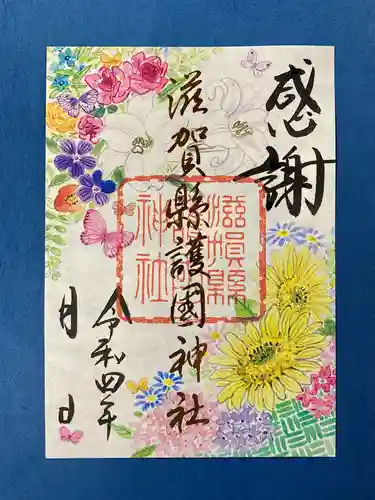 感謝
滋賀縣護國神社
滋賀縣
護國
神社
令和四年
八月 日